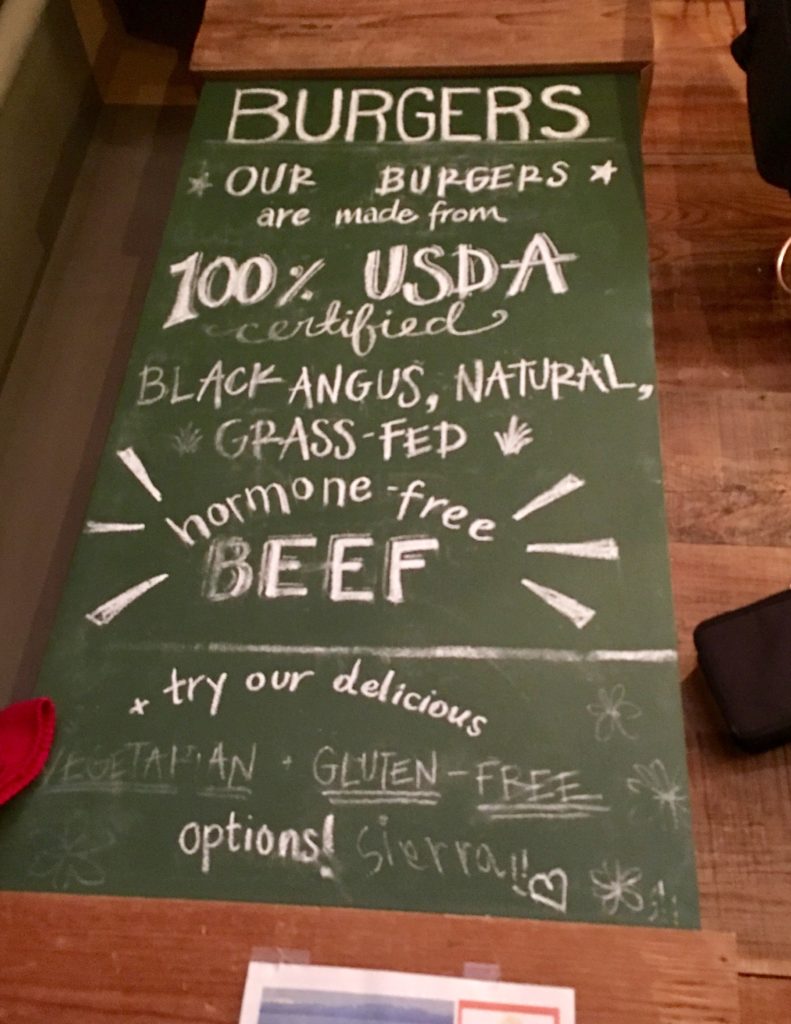 BURGERS
OUR BURGERS
are made from
100% USDA
certified
BLACK ANGUS, NATURAL,
GRASS-FED
hormone-free
BEEF
+ try our delicious
VEGETARIAN + GLUTEN-FREE
options! sierra!!